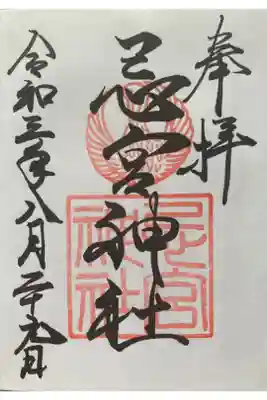 奉拝
忌宮神社
忌宮
神社
令和三年八月二十九日